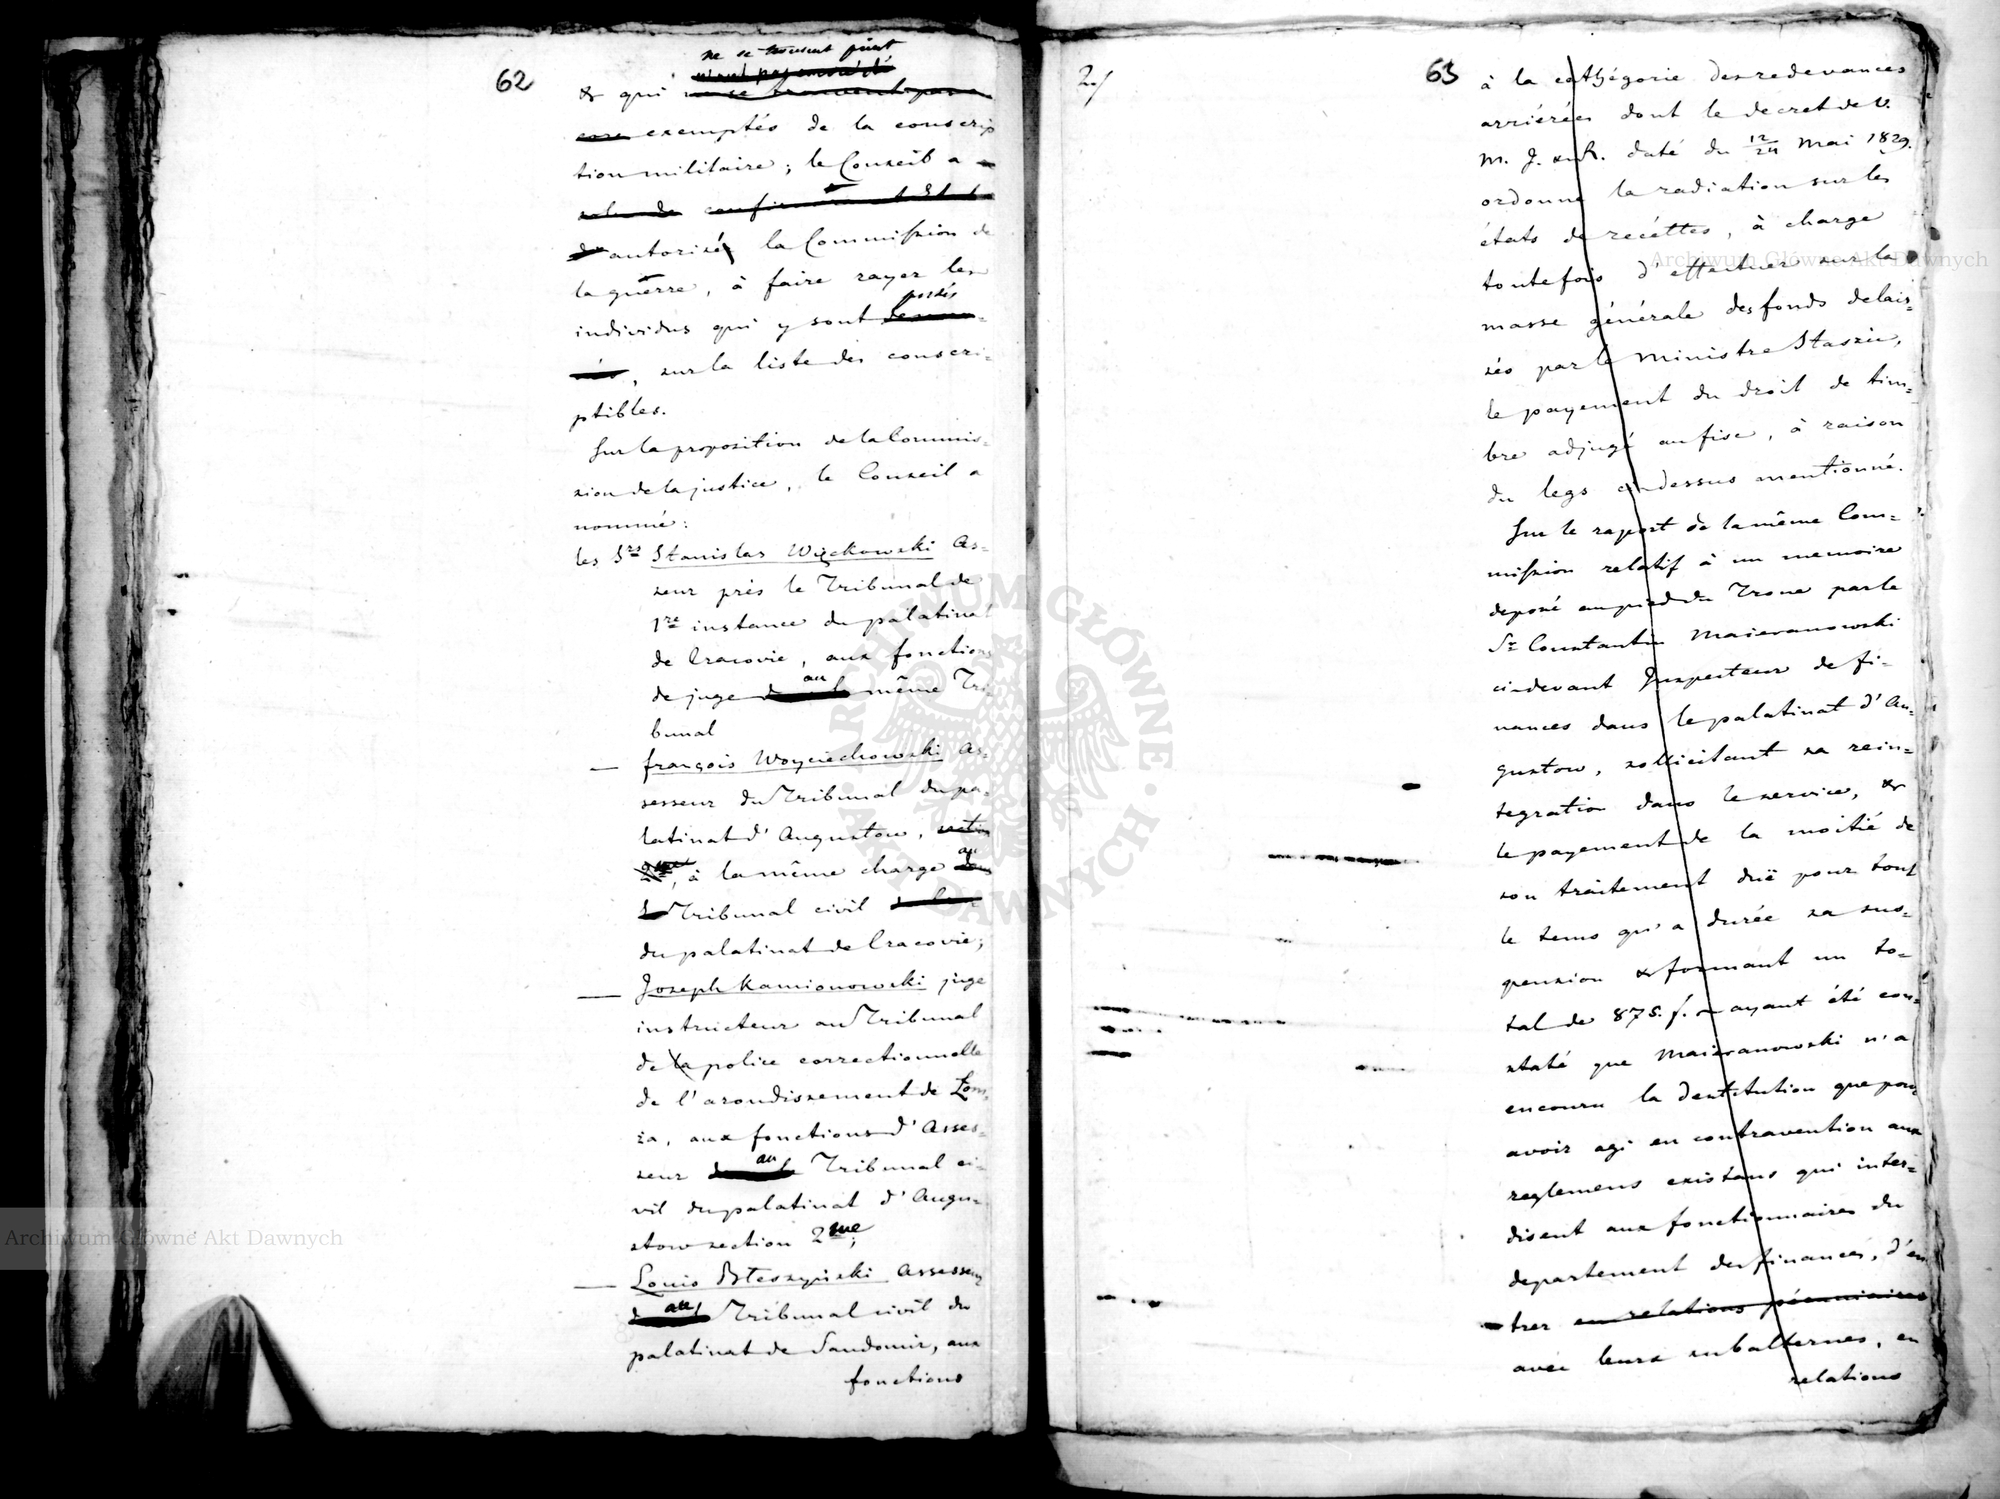 62
ne se trouvent point
& qui
exemptés de la conscrip
tion militaire; le Conseil a
autorisé la Commission de
la guerre, à faire rayer les
individus qui y sont portés
, sur la liste des conscri-
ptibles.
Sur la proposition de la Commis-
sion de la justice, le Conseil a
nommé:
les Srs Stanislas Więckowski As-
seur près le Tribunal de
1re instance du palatinat
de Cracovie, aux fonctions
de juge au même Tri
bunal
— françois Woyciechowski As-
sesseur du Tribunal du pa-
latinat d'Augustow,
, à la même charge au
Tribunal civil
du palatinat de Cracovie;
— Joseph Kamionowski juge
instructeur au Tribunal
de la police correctionnelle
de l'arondissement de Łom-
ża, aux fonctions d'Asses-
seur au Tribunal ci-
vil du palatinat d'Augu-
stow section 2me;
— Louis Błeszyński Assesseur
au Tribunal civil du
palatinat de Sandomir, aux
fonctions
2./
63
à la cathégorie des redevances
arriérées dont le decret de V.
M. J. & R. daté du 12/24 Mai 1829.
ordonne la radiation sur les
états de recéttes, à charge
toutefois d'effectuer sur la
masse générale des fonds delais-
sés par le Ministre Staszic,
le payement du droit de tim-
bre adjugé au fisc, à raison
du legs ci-dessus mentionné.
Sur le raport de la même Com-
mission relatif à un memoire
deposé au pied du Trone par le
Sr Constantin Maieranowski
ci-devant Inspecteur de fi-
nances dans le palatinat d'Au-
gustow, sollicitant sa rein-
tegration dans le service, &
le payement de la moitié de
son traitement düe pour tout
le tems qu'a durée sa sus-
pension & formant un to-
tal de 875. f. ayant été con-
staté que Maieranowski n'a
encouru la destitution que pour
avoir agi en contravention aux
reglemens existans qui inter-
disent aux fonctionnaires du
departement des finances, d'en
trer en relations pécuniaires
avec leurs subalternes, en
relations
Archiwum Główne Akt Dawnych
Archiwum Główne Akt Dawnych
ARCHIWUM GŁÓWNE · AKT DAWNYCH ·